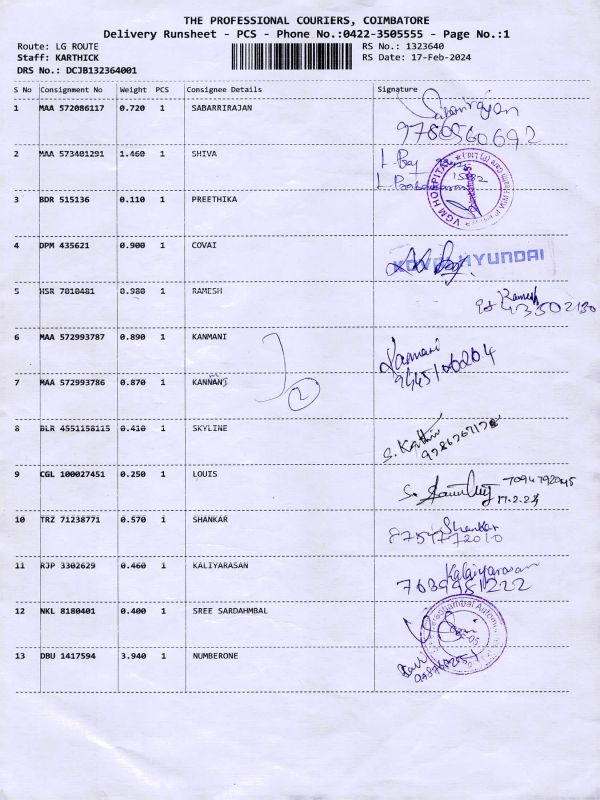 THE PROFESSIONAL COURIERS, COIMBATORE
Delivery Runsheet - PCS - Phone No.:0422-3505555 - Page No.:1
Route: LG ROUTE RS No.: 1323640
Staff: KARTHICK RS Date: 17-Feb-2024
DRS No.: DCJB132364001
S No Consignment No Weight PCS Consignee Details Signature
1 MAA 572086117 0.720 1 SABARRIRAJAN Sabarirajan
9780560692
2 MAA 573401291 1.460 1 SHIVA
VGM HOSPITAL
3 BDR 515136 0.110 1 PREETHIKA
4 DPM 435621 0.900 1 COVAI
KOVAI HYUNDAI
5 HSR 7010481 0.980 1 RAMESH Ramesh
6 MAA 572993787 0.890 1 KANMANI Kanmani
7 MAA 572993786 0.870 1 KANMANI
2
8 BLR 4551158115 0.410 1 SKYLINE
9 CGL 100027451 0.250 1 LOUIS 7094792045
17.2.24
10 TRZ 71238771 0.570 1 SHANKAR Shankar
8754772010
11 RJP 3302629 0.460 1 KALIYARASAN Kalaiyarasan
7639981222
12 NKL 8180401 0.400 1 SREE SARDAHMBAL
13 DBU 1417594 3.940 1 NUMBERONE